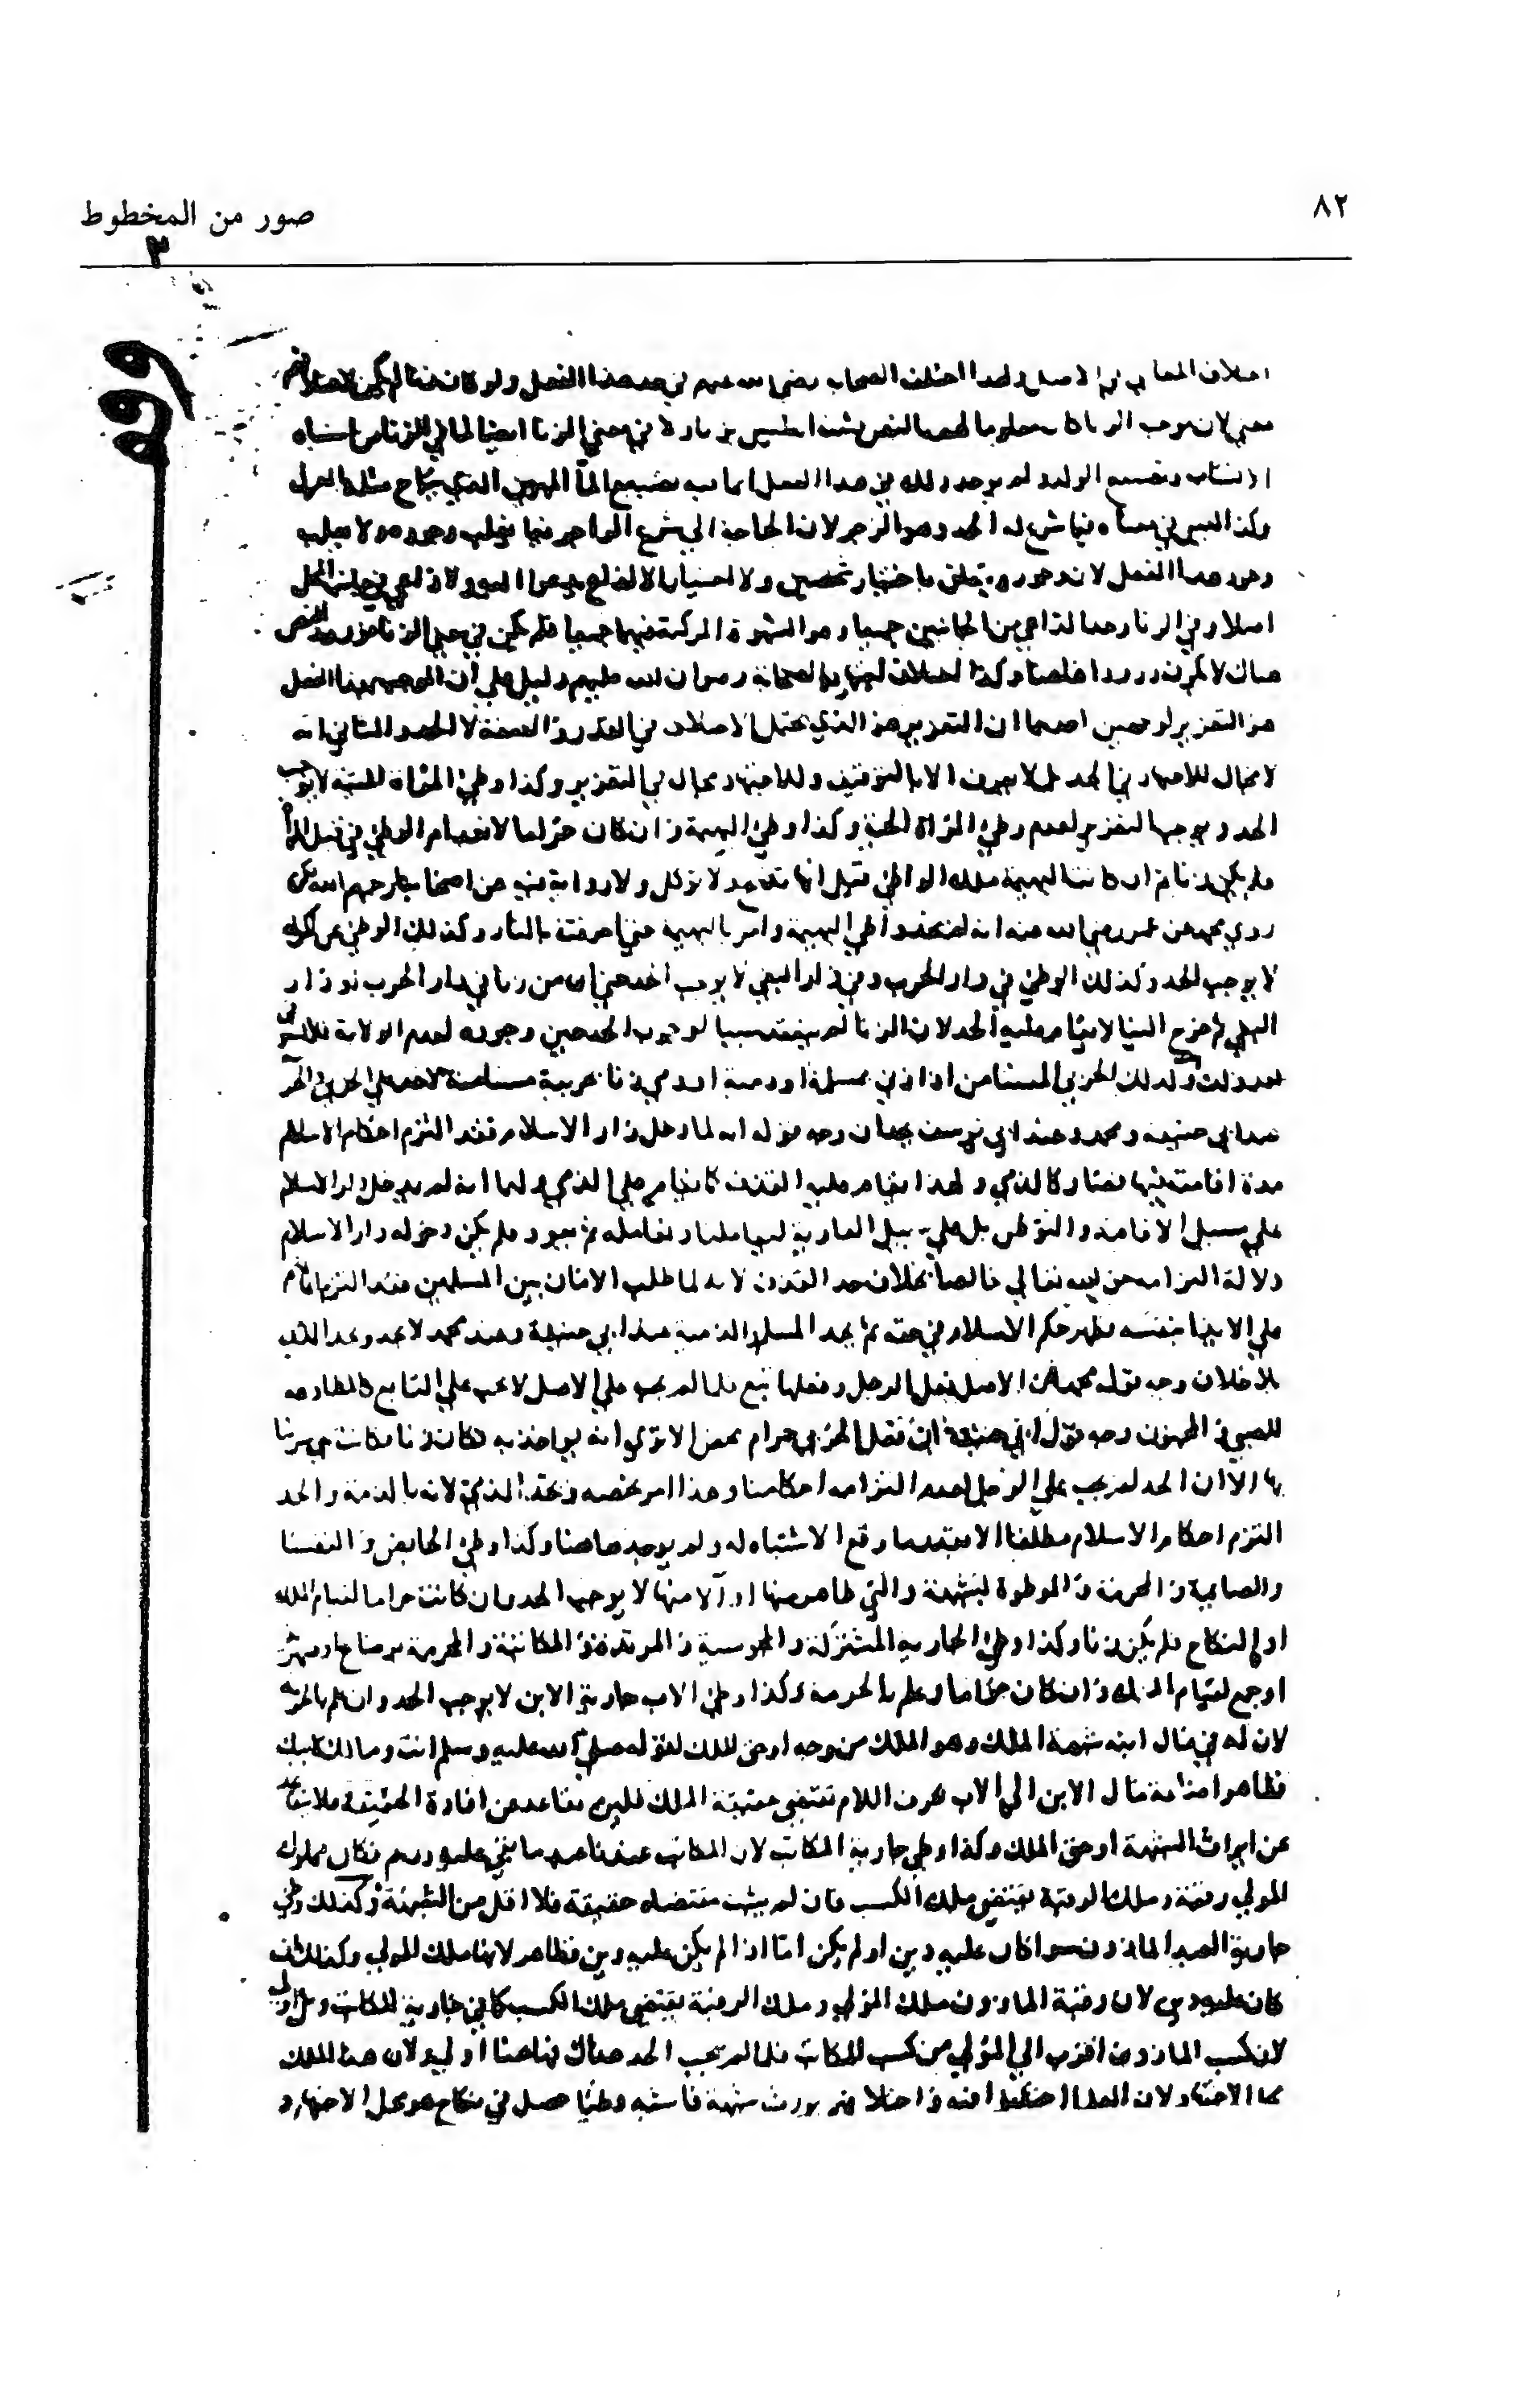 ٨٢
صور من المخطوط
٣
وقف
المعاني في الاصل ولهذا اختلف الصحابة رضي الله عنهم في حد هذا الفعل ولو كان هذا لم يكن لاختلافهم
معني لان موجب الزنا كان معلوما لهم بالنص فثبت انه ليس بزنا ولا في معني الزنا ايضا لما في الزنا من اشتباه
الانساب وتضييع الولد ولم يوجد ذلك في هذا الفعل انما فيه تضييع الماء المهين الذي يباح مثله بالعزل
وكذا ليس في معناه فيما شرع له الحد وهو الزجر لان الحاجة الي شرع الزاجر فيما يغلب وجوده ولا يغلب
وجود هذا الفعل لان وجوده يتعلق باختيار شخصين ولا اختيار الا لداع يدعو اليه ولا داعي في جانب المحل
اصلا وفي الزنا وجد الداعي من الجانبين جميعا وهو الشهوة المركبة فيهما جميعا فلم يكن في معني الزنا فورود النص
هناك لا يكون ورودا هاهنا وكذا اختلاف اجتهاد الصحابة رضوان الله عليهم دليل علي ان الموجب بهذا الفعل
هو التعزير لوجهين احدهما ان التعزير هو الذي يحتمل الاختلاف في القدر والصفة لا الحد والثاني انه
لا مجال للاجتهاد في الحد بل لا يعرف الا بالتوقيف وللاجتهاد مجال في التعزير وكذا وطئ المراة الميتة لا يوجب
الحد ويوجب التعزير لعدم وطئ المراة الحية وكذا وطئ البهيمة وان كان حراما لانعدام الوطئ في قبل المراة
فلم يكن زنا ثم ان كانت البهيمة ملك الواطئ قيل انها تذبح ولا تؤكل ولا رواية فيه عن اصحابنا رحمهم الله لكن
روي محمد عن عمر رضي الله عنه انه لم يحد واطئ البهيمة وامر بالبهيمة حتي احرقت بالنار وكذلك الوطئ عن اكراه
لا يوجب الحد وكذلك الوطئ في دار الحرب وفي دار البغي لا يوجب الحد حتي ان من زنا في دار الحرب او دار
البغي ثم خرج الينا لا يقام عليه الحد لان الزنا لم ينعقد سببا لوجوب الحد حين وجوده لعدم الولاية فلا يستوفي
بعد ذلك وكذلك الحربي المستامن اذا زني بمسلمة او ذمية او ذمي زنا بحربية مستامنة لا حد علي الحربي والحربية
عند ابي حنيفة ومحمد وعند ابي يوسف يحدان وجه قوله انه لما دخل دار الاسلام فقد التزم احكام الاسلام
مدة اقامته فيها فصار كالذمي ولهذا يقام عليه حد القذف كما يقام علي الذمي ولهما انه لم يدخل دار الاسلام
علي سبيل الاقامة والتوطن بل علي سبيل العارية ليعاملنا ونعامله ثم يعود فلم يكن دخوله دار الاسلام
دلالة التزامه حق الله تعالي خالصا بخلاف حد القذف لانه لما طلب الامان من المسلمين فقد التزم امانهم
علي الايذاء بنفسه فظهر حكم الاسلام في حقه ثم يحد المسلم والذمية عند ابي حنيفة وعند محمد لا يحد ويحد الذمي
بلا خلاف وجه قول محمد ان الاصل فعل الرجل وفعلها تبع فلما لم يجب علي الاصل لا يجب علي التابع كالمطاوعة
للصبي والمجنون وجه قول ابي حنيفة ان فعل الحربي حرام محض الا تري انه يواخذ به فكان زنا فكانت هي مزنيا
بها الا ان الحد لم يجب علي الرجل لعدم التزامه احكامنا وهذا امر يخصه ويحد الذمي لانه بالذمة والحد
التزم احكام الاسلام مطلقا الا بقدر ما وقع الاشتباه له ولم يوجد هاهنا وكذا وطئ الحايض والنفسا
والصايمة والمحرمة والموطوة بشبهة والتي ظاهر منها او آلا منها لا يوجب الحد وان كانت حراما لقيام الملك
او النكاح فلم يكن زنا وكذا وطئ الجارية المشتركة والمجوسية والمرتدة والمكاتبة والمحرمة برضاع او صهر
او جمع لقيام الملك وان كان حراما وعلم بالحرمة وكذا وطئ الاب جارية الابن لا يوجب الحد وان علم بالحرمة
لان له في مال ابنه شبهة الملك وهو الملك من وجه او حق الملك لقوله صلي الله عليه وسلم انت ومالك لابيك
فظاهر اضافة مال الابن الي الاب بحرف اللام يقتضي حقيقة الملك فلين تقاعد عن افادة الحقيقة فلا يتقاعد
عن ايراث الشبهة او حق الملك وكذا وطئ جارية المكاتب لان المكاتب عندنا عبد ما بقي عليه درهم فكان مملوك
المولي رقبة وملك الرقبة يقتضي ملك الكسب فان لم يثبت مقتضاه حقيقة فلا اقل من الشبهة وكذلك وطئ
جارية العبد الماذون سوا كان عليه دين او لم يكن اما اذا لم يكن عليه دين فظاهر لانها ملك المولي وكذلك ان
كان عليه دين لان رقبة الماذون ملك المولي وملك الرقبة يقتضي ملك الكسب كما في جارية المكاتب وبل اولي
لان كسب الماذون اقرب الي المولي من كسب المكاتب فلما لم يجب الحد هناك فهاهنا اولي ولان هذا الملك
محل الاجتهاد لان العلما اختلفوا فيه واختلافهم يورث شبهة فاشبه وطئا حصل في نكاح هو محل الاجتهاد و